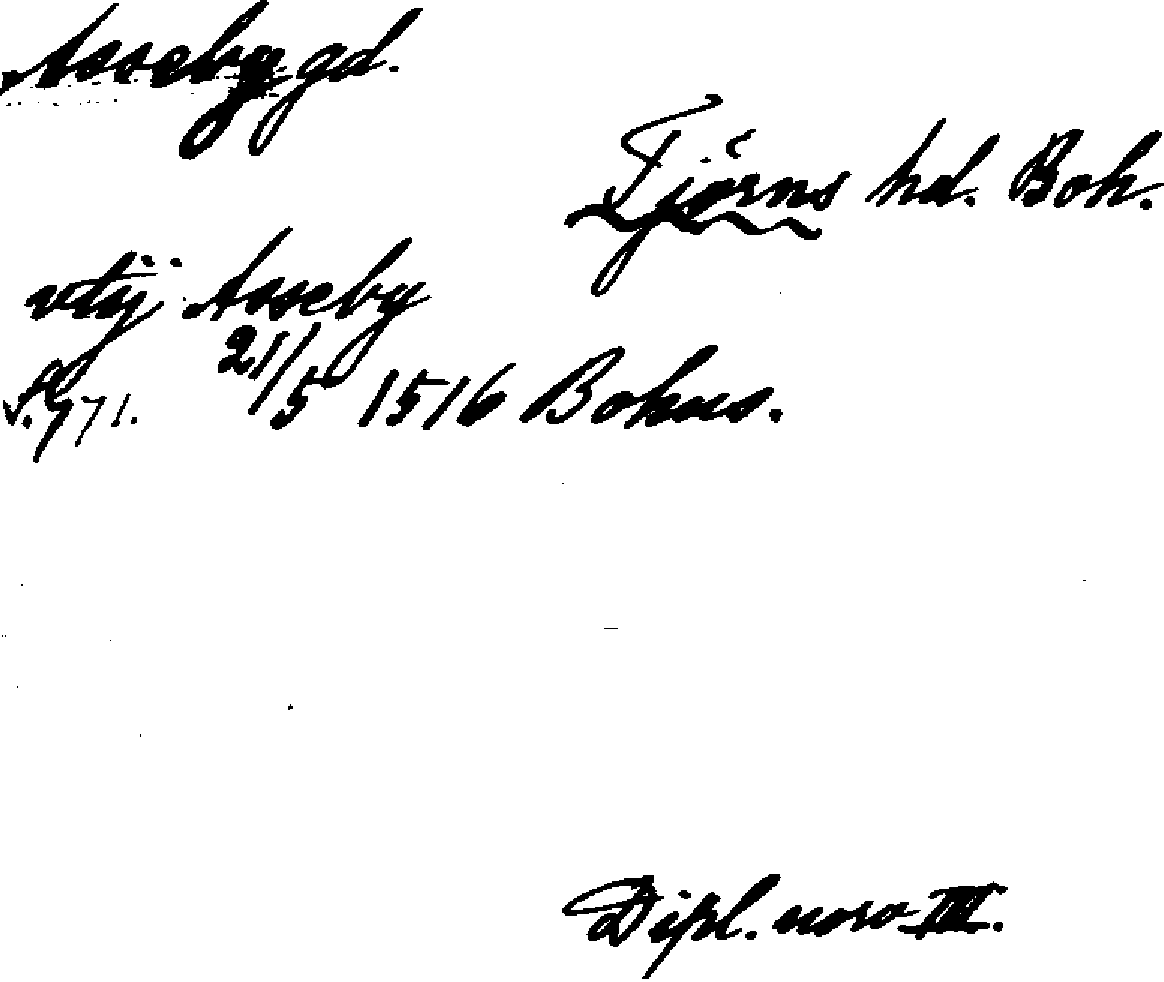 Asseby gd.
Tjörns hd. Boh.
vtij Asseby
s. 771. 21/5 1516 Bohus.
Dipl. norv III.